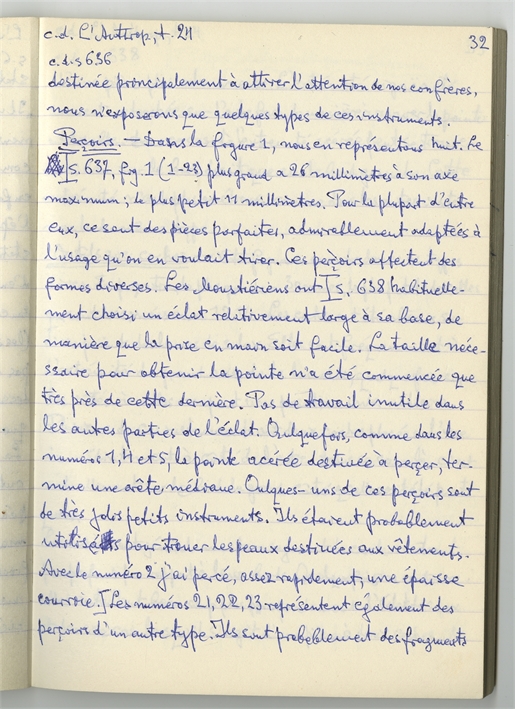 c.d. L'Anthrop, t. 24
32
c.d.s 636
destinée principalement à attirer l'attention de nos confrères,
nous n'exposerons que quelques types de ces instruments.
Perçoirs. — Dans la figure 1, nous en représentons huit. Le
[s. 637, fig. 1 (1-23) plus grand a 26 millimètres à son axe
maximum; le plus petit 11 millimètres. Pour la plupart d'entre
eux, ce sont des pièces parfaites, admirablement adaptées à
l'usage qu'on en voulait tirer. Ces perçoirs affectent des
formes diverses. Les Moustiériens ont [s. 638 habituelle-
ment choisi un éclat relativement large à sa base, de
manière que la prise en main soit facile. La taille néce-
ssaire pour obtenir la pointe n'a été commencée que
très près de cette dernière. Pas de travail inutile dans
les autres parties de l'éclat. Quelquefois, comme dans les
numéros 1, 4 et 5, la pointe acérée destinée à perçer, ter-
mine une arête médiane. Quelques-uns de ces perçoirs sont
de très jolis petits instruments. Ils étaient probablement
utilisés pour trouer les peaux destinées aux vêtements.
Avec le numéro 2 j'ai percé, assez rapidement, une épaisse
courroie. [Les numéros 21, 22, 23 représentent également des
perçoirs d'un autre type. Ils sont probablement des fragments